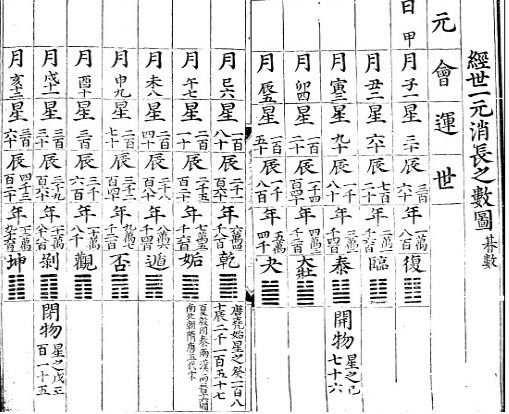 經世一元消長之數圖
元會運世
日甲
月子一星三十辰三百六十年一萬八百復
月丑二星六十辰七百二十年二萬一千六百臨
月寅三星九十辰一千八十年三萬二千四百泰
開物星之己七十六
月卯四星一百二十辰一千四百四十年四萬三千二百大壯
月辰五星一百五十辰一千八百年五萬四千夬
月巳六星一百八十辰二千一百六十年六萬四千八百乾
唐堯始星之癸一百八
十辰二千一百五十七
月午七星二百一十辰二千五百二十年七萬五千六百姤
夏殷周秦兩漢兩晉十六國
南北朝隋唐五代宋
月未八星二百四十辰二千八百八十年八萬六千四百遯
月申九星二百七十辰三千二百四十年九萬七千二百否
月酉十星三百辰三千六百年十萬八千觀
月戌十一星三百三十辰三千九百六十年十一萬八千八百剝
閉物星之戊三百一十五
月亥十二星三百六十辰四千三百二十年十二萬九千六百坤